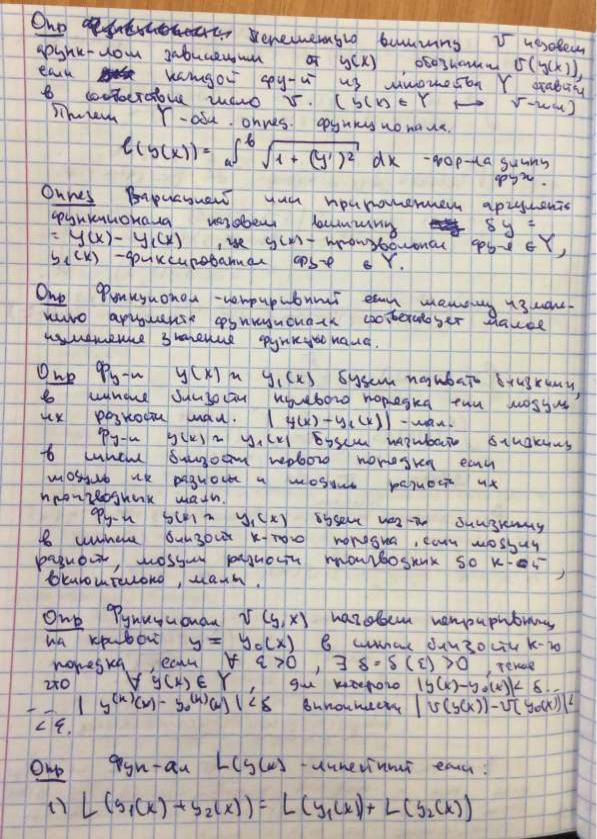 Опр переменную величину v назовем
функ-лом зависящим от y(x), обозначим v(y(x)),
если каждой фу-и из множества Y ставится
в соответствие число v. (y(x) ∈ Y ⟷ v-числ)
Причем Y-обл. опред. функционала.
l(y(x)) = ₐ∫ᵇ √(1 + (y')²) dx -фор-ла длины
фун.
Опред Вариацией или приращением аргумента
функционала назовем величину δy =
= y(x) - y₁(x), где y(x)-произвольная фу-я ∈ Y,
y₁(x) -фиксированная фу-я ∈ Y.
Опр Функционал -неприрывный если малому измене-
нию аргумента функционала соответствует малое
изменение значение функционала.
Опр Фу-и y(x) и y₁(x) будем называть близкими,
в смысле близости нулевого порядка если модуль
их разности мал. |y(x)-y₁(x)| -мал.
Фу-и y(x) и y₁(x) будем называть близкими
в смысле близости первого порядка если
модуль их разности и модуль разность их
производных малы.
Фу-и y(x) и y₁(x) будем наз-ть близкими
в смысле близост к-того порядка, если модули
разности, модули разности производних до к-ой,
включительно, малы.
Опр Функционал v(y,x) назовем неприрывным
на кривой y = y₀(x) в смысле близости к-го
порядка, если ∀ ε>0, ∃ δ=δ(ε)>0, такое
что ∀ y(x) ∈ Y, для которого |y(x)-y₀(x)|< δ...
... |y⁽ᵏ⁾(x)-y₀⁽ᵏ⁾(x)|<δ выполняется |v(y(x))-v(y₀(x))|<
< ε.
Опр Фун-ал L(y(x) -линейный если:
1) L(y₁(x)+y₂(x)) = L(y₁(x))+ L(y₂(x))